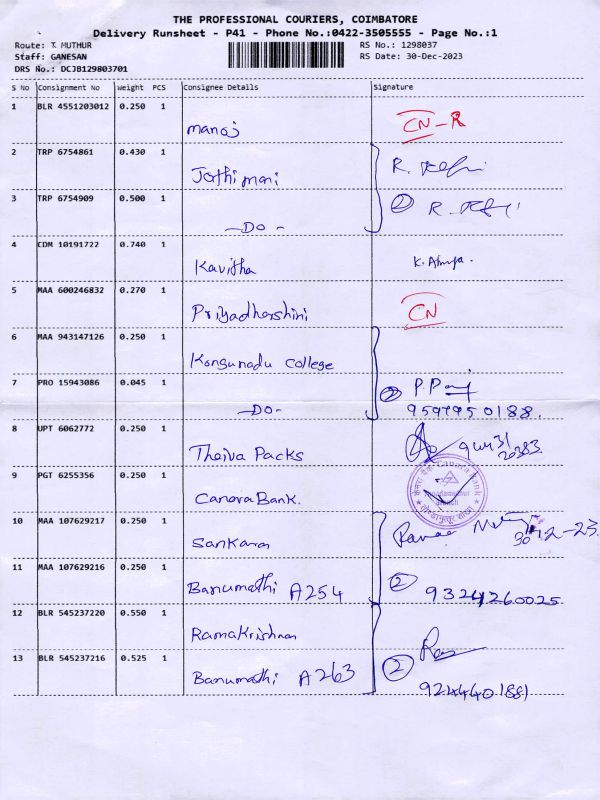 THE PROFESSIONAL COURIERS, COIMBATORE
Delivery Runsheet - P41 - Phone No.:0422-3505555 - Page No.:1
Route: T. MUTHUR RS No.: 1298037
Staff: GANESAN RS Date: 30-Dec-2023
DRS No.: DCJB129803701
S No Consignment No Weight PCS Consignee Details Signature
1 BLR 4551203012 0.250 1
manoj CN-R
2 TRP 6754861 0.430 1
Jothi mani R.
3 TRP 6754909 0.500 1
② R.
-DO-
4 CDM 10191722 0.740 1
Kavitha K.
5 MAA 600246832 0.270 1
Priyadharshini CN
6 MAA 943147126 0.250 1
Kongunadu college
7 PRO 15943086 0.045 1
② P.
-DO- 9597950188.
8 UPT 6062772 0.250 1
Theiva Packs
9 PGT 6255356 0.250 1
Canara Bank. Canara Bank
10 MAA 107629217 0.250 1
Sankaran 30-12-23.
11 MAA 107629216 0.250 1
Banumathi A254 ② 9324260025
12 BLR 545237220 0.550 1
Ramakrishnan
13 BLR 545237216 0.525 1
Banumathi A263 ②
9244401881